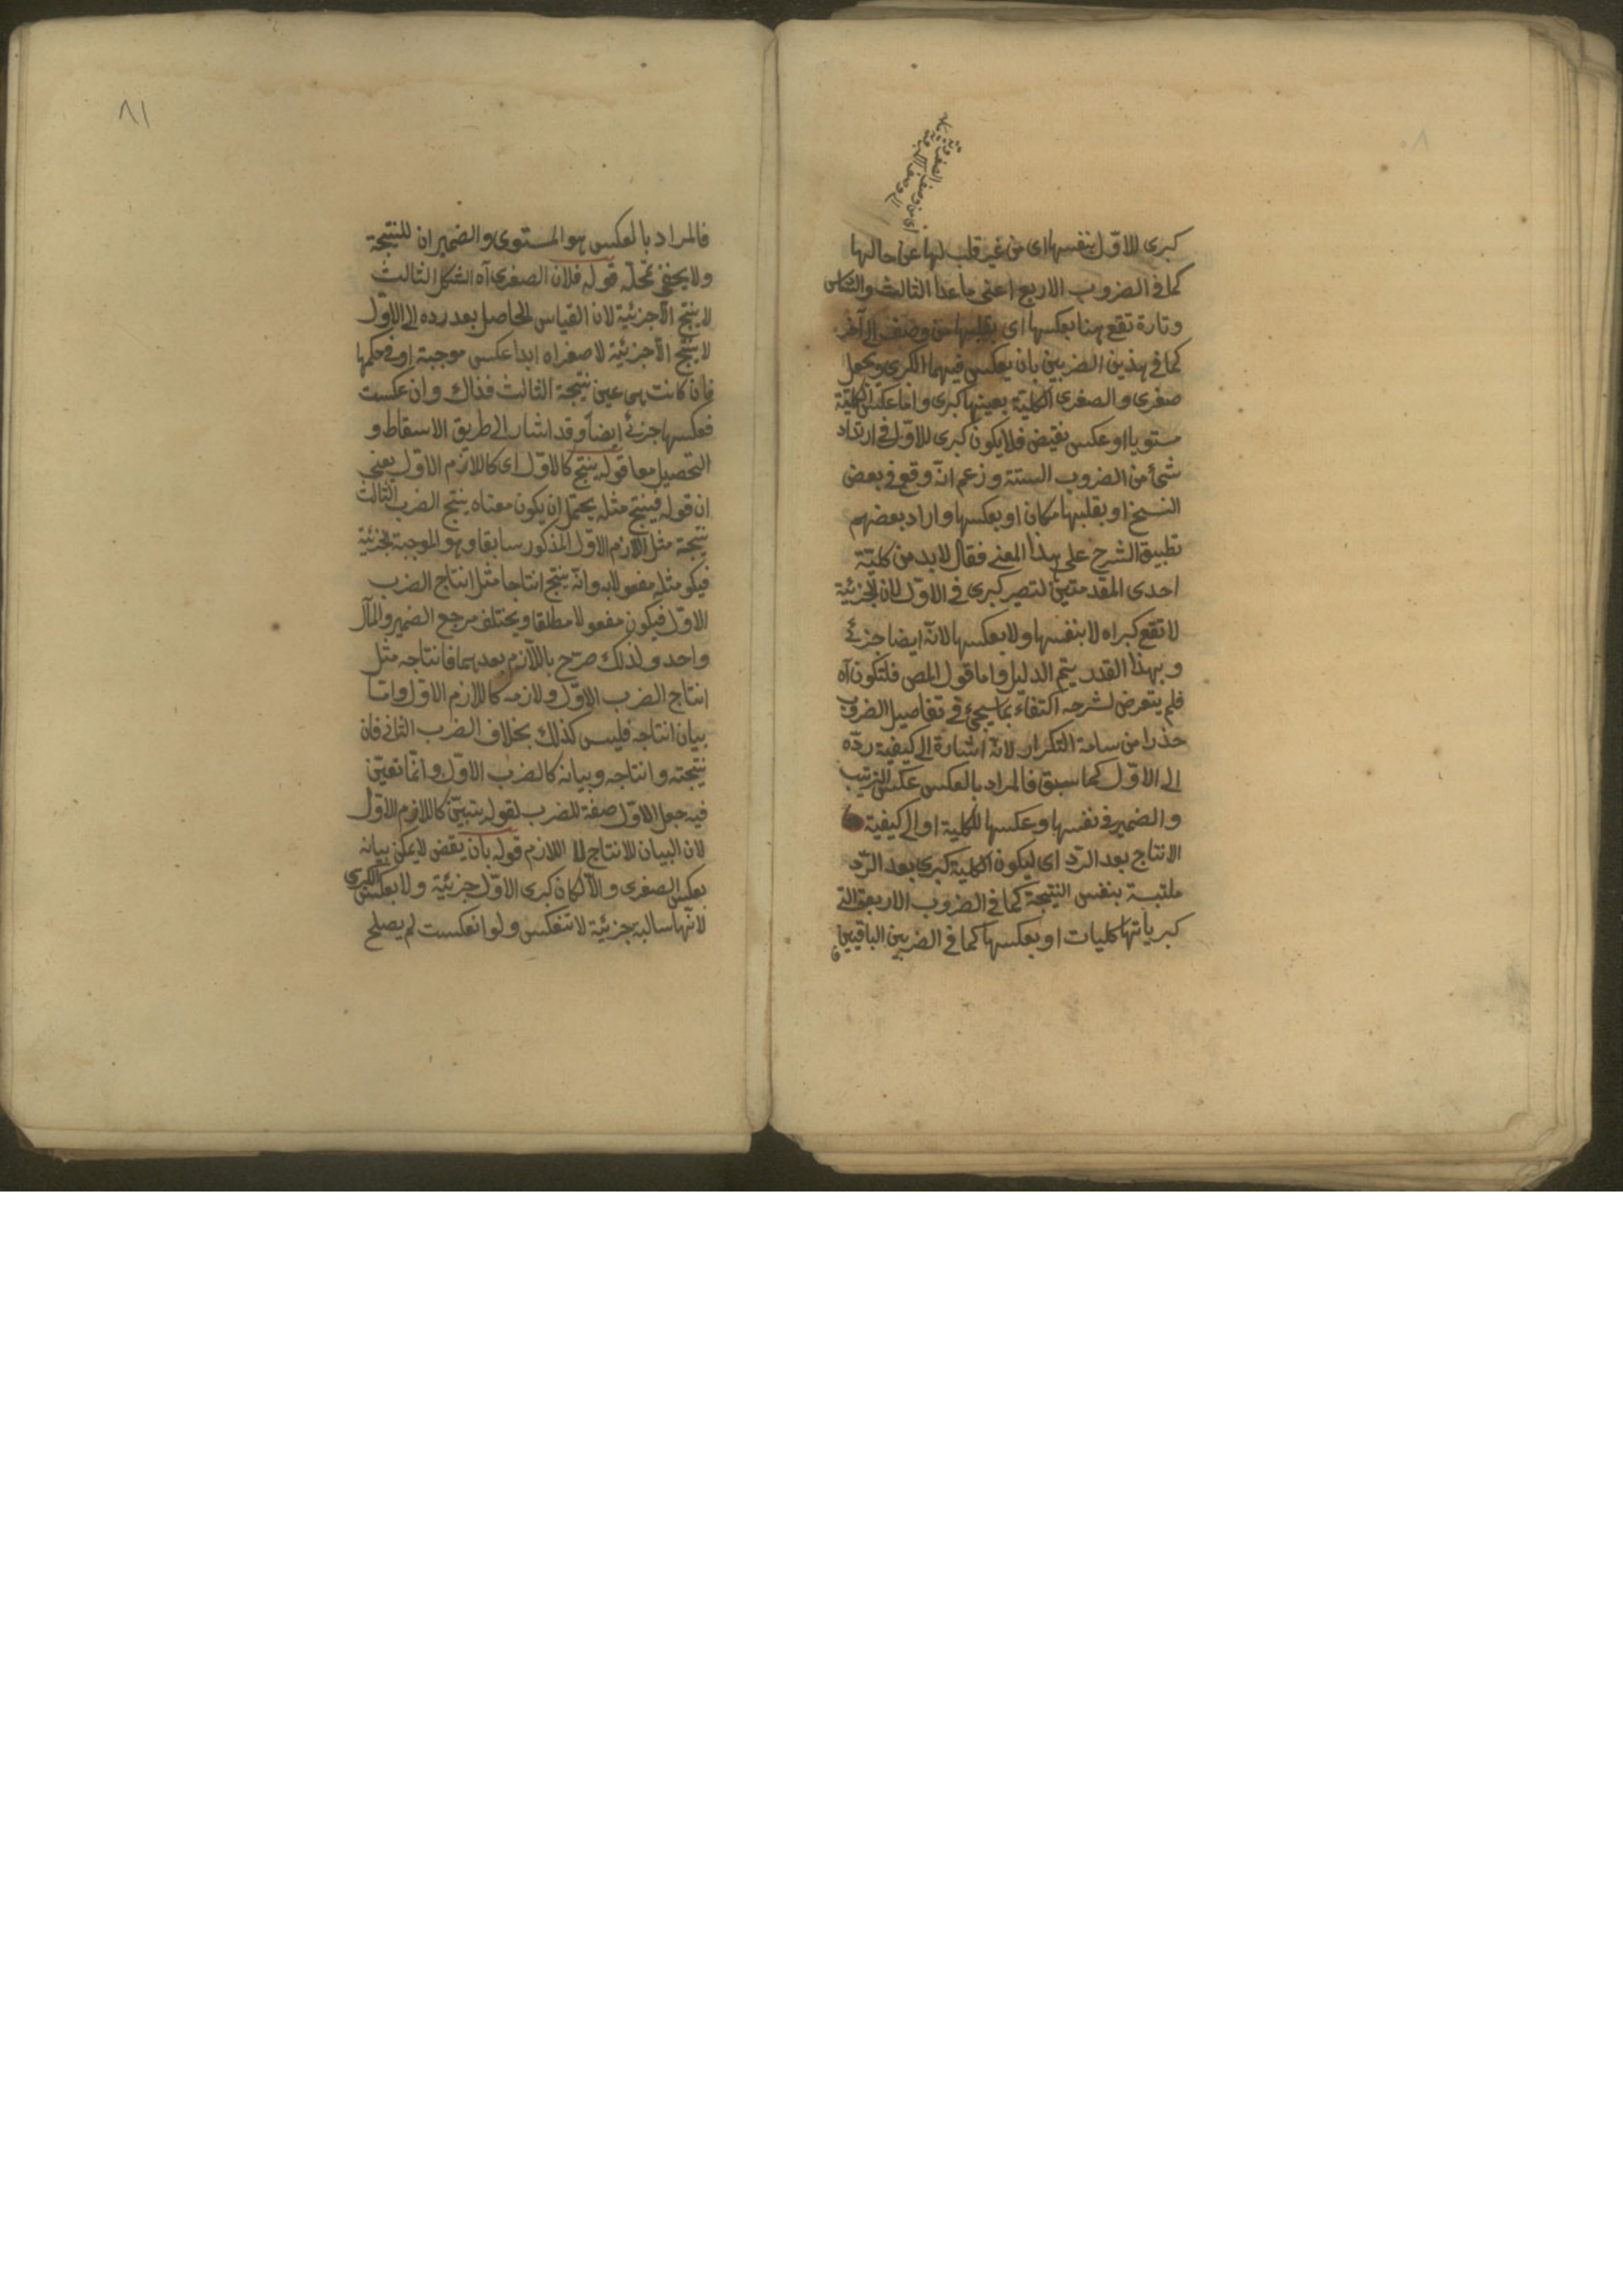 كبرى للاوّل بنفسها اى من غير قلب لها عن حالها
كما فى الضروب الاربع اعنى ما عدا الثالث والسادس
وتارة تقع هنا بعكسها اى بقلبها من وصف الى آخر
كما فى هذين الضربين بان يعكس فيهما الكبرى ويجعل
صغرى والصغرى الكلية بعينها كبرى واما عكس الكلية
مستويا او عكس نقيض فلا يكون كبرى للاوّل فى ارتداد
شئ من الضروب الستة وزعم انّه وقع فى بعض
النسخ او بقلبها مكان او بعكسها واراد بعضهم
تطبيق الشرح على هذا المعنى فقال لابد من كليّة
احدى المقدمتين لتصير كبرى فى الاوّل لان الجزئية
لا تقع كبراه لا بنفسها ولا بعكسها لانّه ايضا جزئى
وبهذا القدر يتم الدليل واما قول المص فلتكون آه
فلم يتعرض لشرحه اكتفاء بما سيجئ فى تفاصيل الضروب
حذرا من سامة التكرار لانّه اشارة الى كيفية ردّه
الى الاوّل كما سبق فالمراد بالعكس عكس الترتيب
والضمير فى نفسها وعكسها للكلية او الى كيفية
الانتاج بعد الردّ اى ليكون الكلية كبرى بعد الردّ
ملتبسة بنفس النتيجة كما فى الضروب الاربعة التى
كبرياتها كليات او بعكسها كما فى الضربين الباقيين
٨١
فالمراد بالعكس هو المستوى والضميران للنتيجة
ولا يخفى تمحلّه قوله فلان الصغرى آه الشكل الثالث
لا ينتج الاّ جزئية لان القياس الحاصل بعد رده الى الاوّل
لا ينتج الاّ جزئية لا صغراه ابدا عكس موجبة او فى حكمها
فان كانت هى عين نتيجة الثالث فذاك وان عكست
فعكسها جزئى ايضا وقد اشار الى طريق الاسقاط و
التحصيل معا قوله ينتج كالاوّل اى كاللازم الاوّل يعنى
ان قوله فينتج مثله يحتمل ان يكون معناه ينتج الضرب الثالث
نتيجة مثل اللازم الاوّل المذكور سابقا وهو الموجبة الجزئية
فيكو مثله مفعولا به وانّه ينتج انتاجا مثل انتاج الضرب
الاوّل فيكون مفعولا مطلقا ويختلف مرجع الضمير والمآل
واحد ولذلك صرّح باللاّزم بعدهما فانتاجه مثل
انتاج الضرب الاوّل ولازمه كاللازم الاوّل وامّا
بيان انتاجه فليس كذلك بخلاف الضرب الثانى فان
نتيجته وانتاجه وبيانه كالضرب الاوّل وانّما تعيّن
فيه جعل الاوّل صفة للضرب لقوله يتبيّن كاللازم الاوّل
لان البيان للانتاج لا اللازم قوله بان يقض لا يمكن بيانه
بعكس الصغرى والاّ لكان كبرى الاوّل جزئية ولا بعكس الكبرى
لانّها سالبة جزئية لا تنعكس ولو انعكست لم يصلح